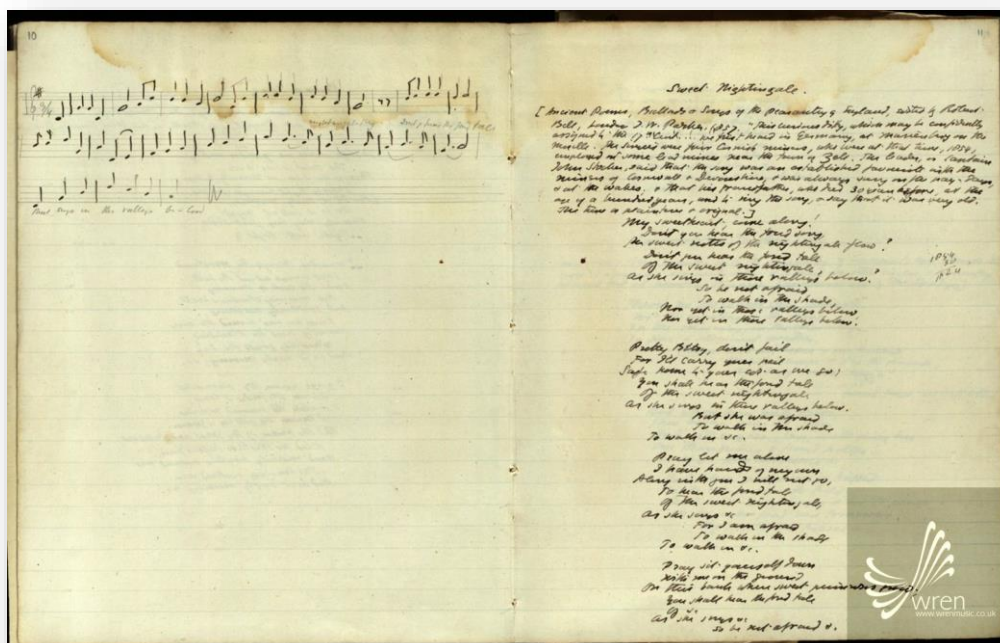 10
Don't you hear the fond tale
That sings in the valleys be-low
11
Sweet Nightingale.
[Ancient Poems, Ballads & Songs of the Peasantry of England, edited by Robert
Bell, London, J. W. Parker, 1857. "This curious ditty, which may be confidently
assigned to the 17th Cent. : we first heard in Germany, at Marienburg on the
Moselle. The singers were four Cornish miners, who were at that time, 1854,
employed at some lead mines near the town of Zell. The leader, or Captain
John Stocker, said that the song was an established favourite with the
miners of Cornwall & Devonshire, & was always sung on the pay-days
& at the wakes, & that his grandfather, who died 30 years before, at the
age of a hundred years, used to sing the song, & say that it was very old.
The tune is plaintive & original.]
My sweetheart, come along!
Don't you hear the fond song
The sweet notes of the nightingale flow?
Don't you hear the fond tale
Of the sweet nightingale,
As she sings in those valleys below?
So be not afraid
To walk in the shade
Nor yet in those valleys below,
Nor yet in those valleys below.
1854
30
1824
Pretty Betsy, don't fail
For I'll carry your pail
Safe home to your cot as we go;
You shall hear the fond tale
Of the sweet nightingale
As she sings in those valleys below.
But she was afraid
To walk in the shade
To walk in &c.
Pray let me alone
I have hands of my own
Along with you I will not go,
To hear the fond tale
Of the sweet nightingale,
As she sings &c
For I am afraid
To walk in the shade
To walk in &c.
Pray sit yourself down
With me on the ground
On this bank where sweet primroses grow.
You shall hear the fond tale
Of &c
As she sings &c
So be not afraid &c.
wren
www.wrenmusic.co.uk